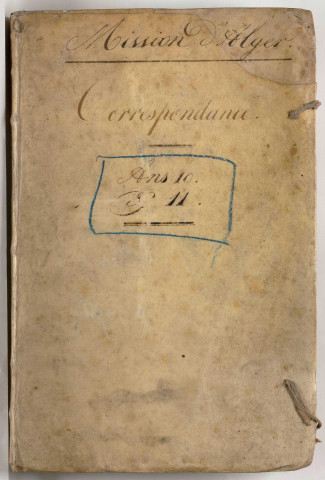 Mission d'Alger.
Correspondance.
Ans 10.
& 11.